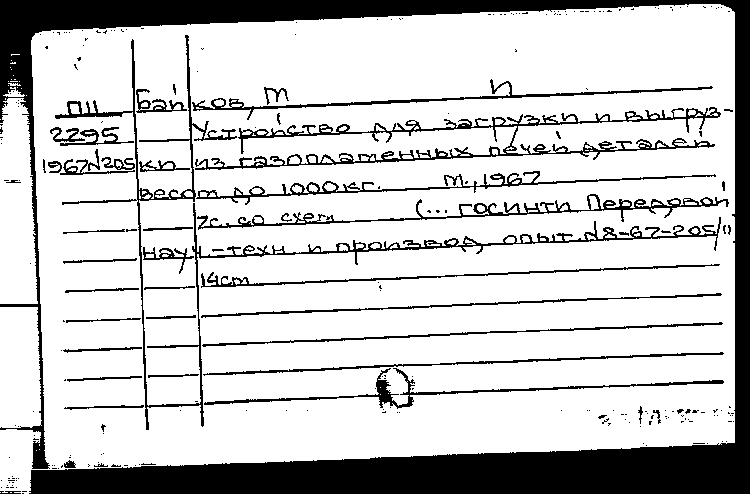 П11 Байков, М И
2295 Устройство для загрузки и выгруз-
1967№205 ки из газопламенных печей деталей
весом до 1000кг. М., 1967
7с. со схем (... ГОСИНТИ Передовой
науч-техн и производ. опыт. №8-67-205/11
14см